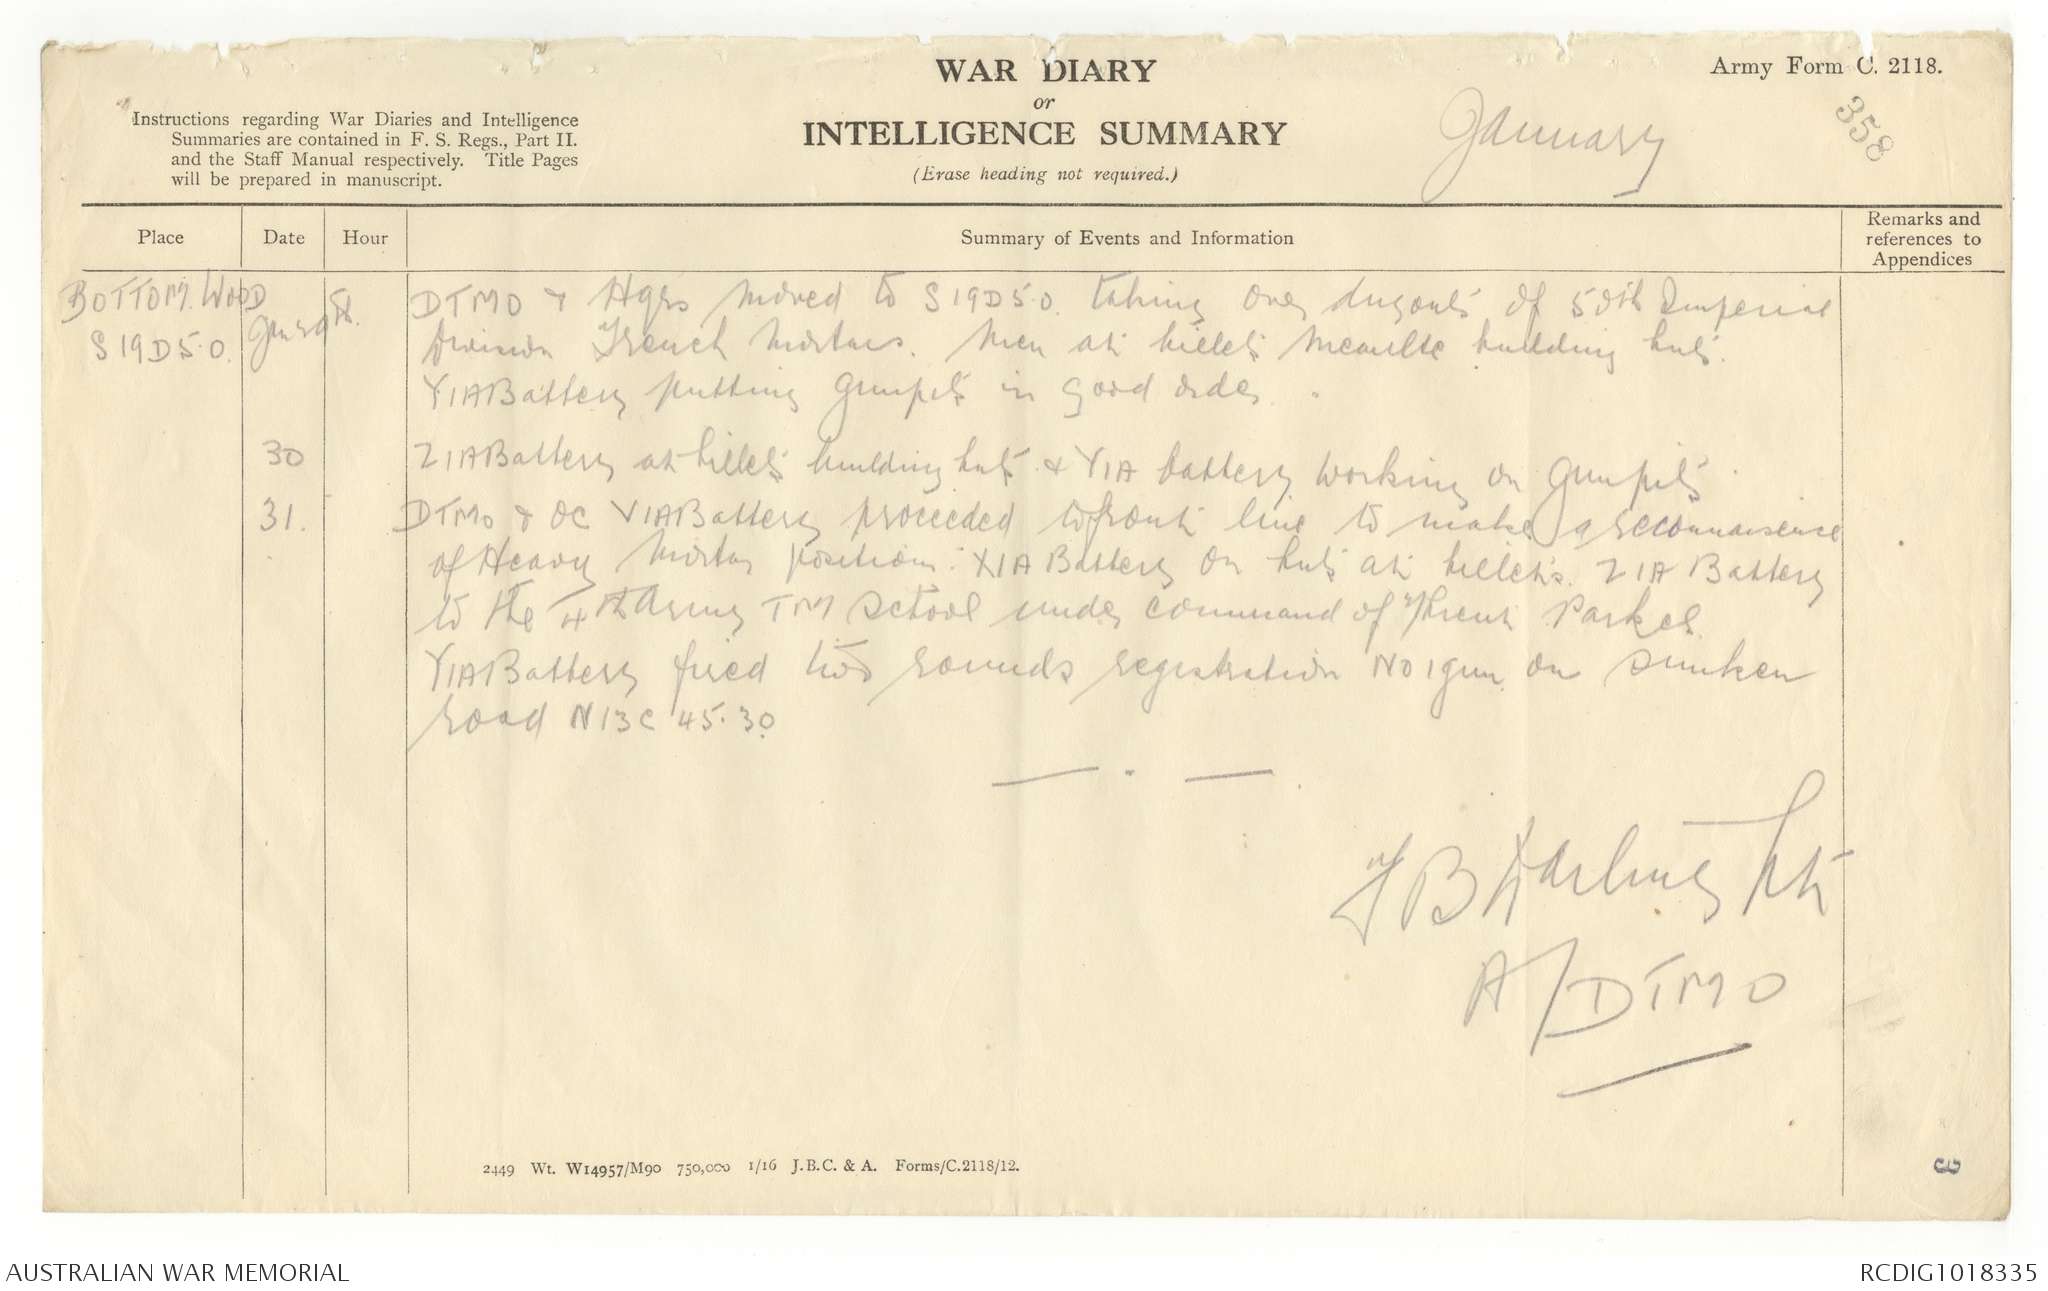 WAR DIARY
or
INTELLIGENCE SUMMARY
(Erase heading not required.)
Army Form C. 2118.
Instructions regarding War Diaries and Intelligence
Summaries are contained in F. S. Regs., Part II.
and the Staff Manual respectively. Title Pages
will be prepared in manuscript.
January
358
Place
Date
Hour
Summary of Events and Information
Remarks and
references to
Appendices
BOTTOM. WOOD
S19D5.0.
Jan 29th.
DTMO & Hqrs moved to S19D5.0. taking over dugouts of 50th Imperial
Division Trench Mortars. Men at billets Meaulte building huts.
Y1ABattery putting gunpits in good order.
30
Z1ABattery at billets building huts & Y1A battery working on gunpits.
31.
DTMO & OC V1ABattery proceeded to front line to make a reconnaisence
of Heavy Mortar positions. X1A Battery on huts at billets. Z1A Battery
to the 4th Army TM School under command of Parkes.
Y1ABattery fired two rounds registration No 1 gun on sunken
road N13C 45.30
B Darling Lt
A/DTMO
2449 Wt. W14957/M90 750,000 1/16 J.B.C. & A. Forms/C.2118/12.
3
AUSTRALIAN WAR MEMORIAL
RCDIG1018335